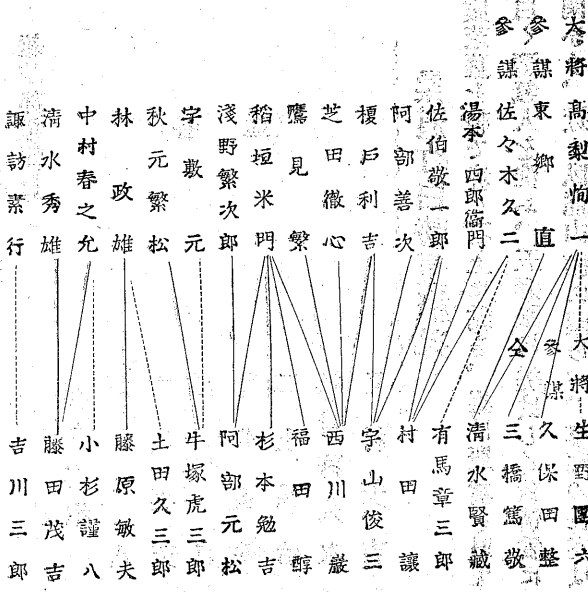 大將 高梨恂一
參謀 東郷直
參謀 佐々木久二
湯本四郎衞門
佐伯敬一郎
阿部善次
榎戸利吉
芝田徹心
鷹見繁
稻垣米門
淺野繁次郎
宇敷元
秋元繁松
林政雄
中村春之允
清水秀雄
諏訪素行
大將 生野團六
參謀 久保田整
仝 三橋篤敬
清水賢藏
有馬章三郎
村田讓
宇山俊三
西川嚴
福田醇
杉本勉吉
阿部元松
牛塚虎三郎
土田久三郎
藤原敏夫
小杉謹八
藤田茂吉
吉川三郎